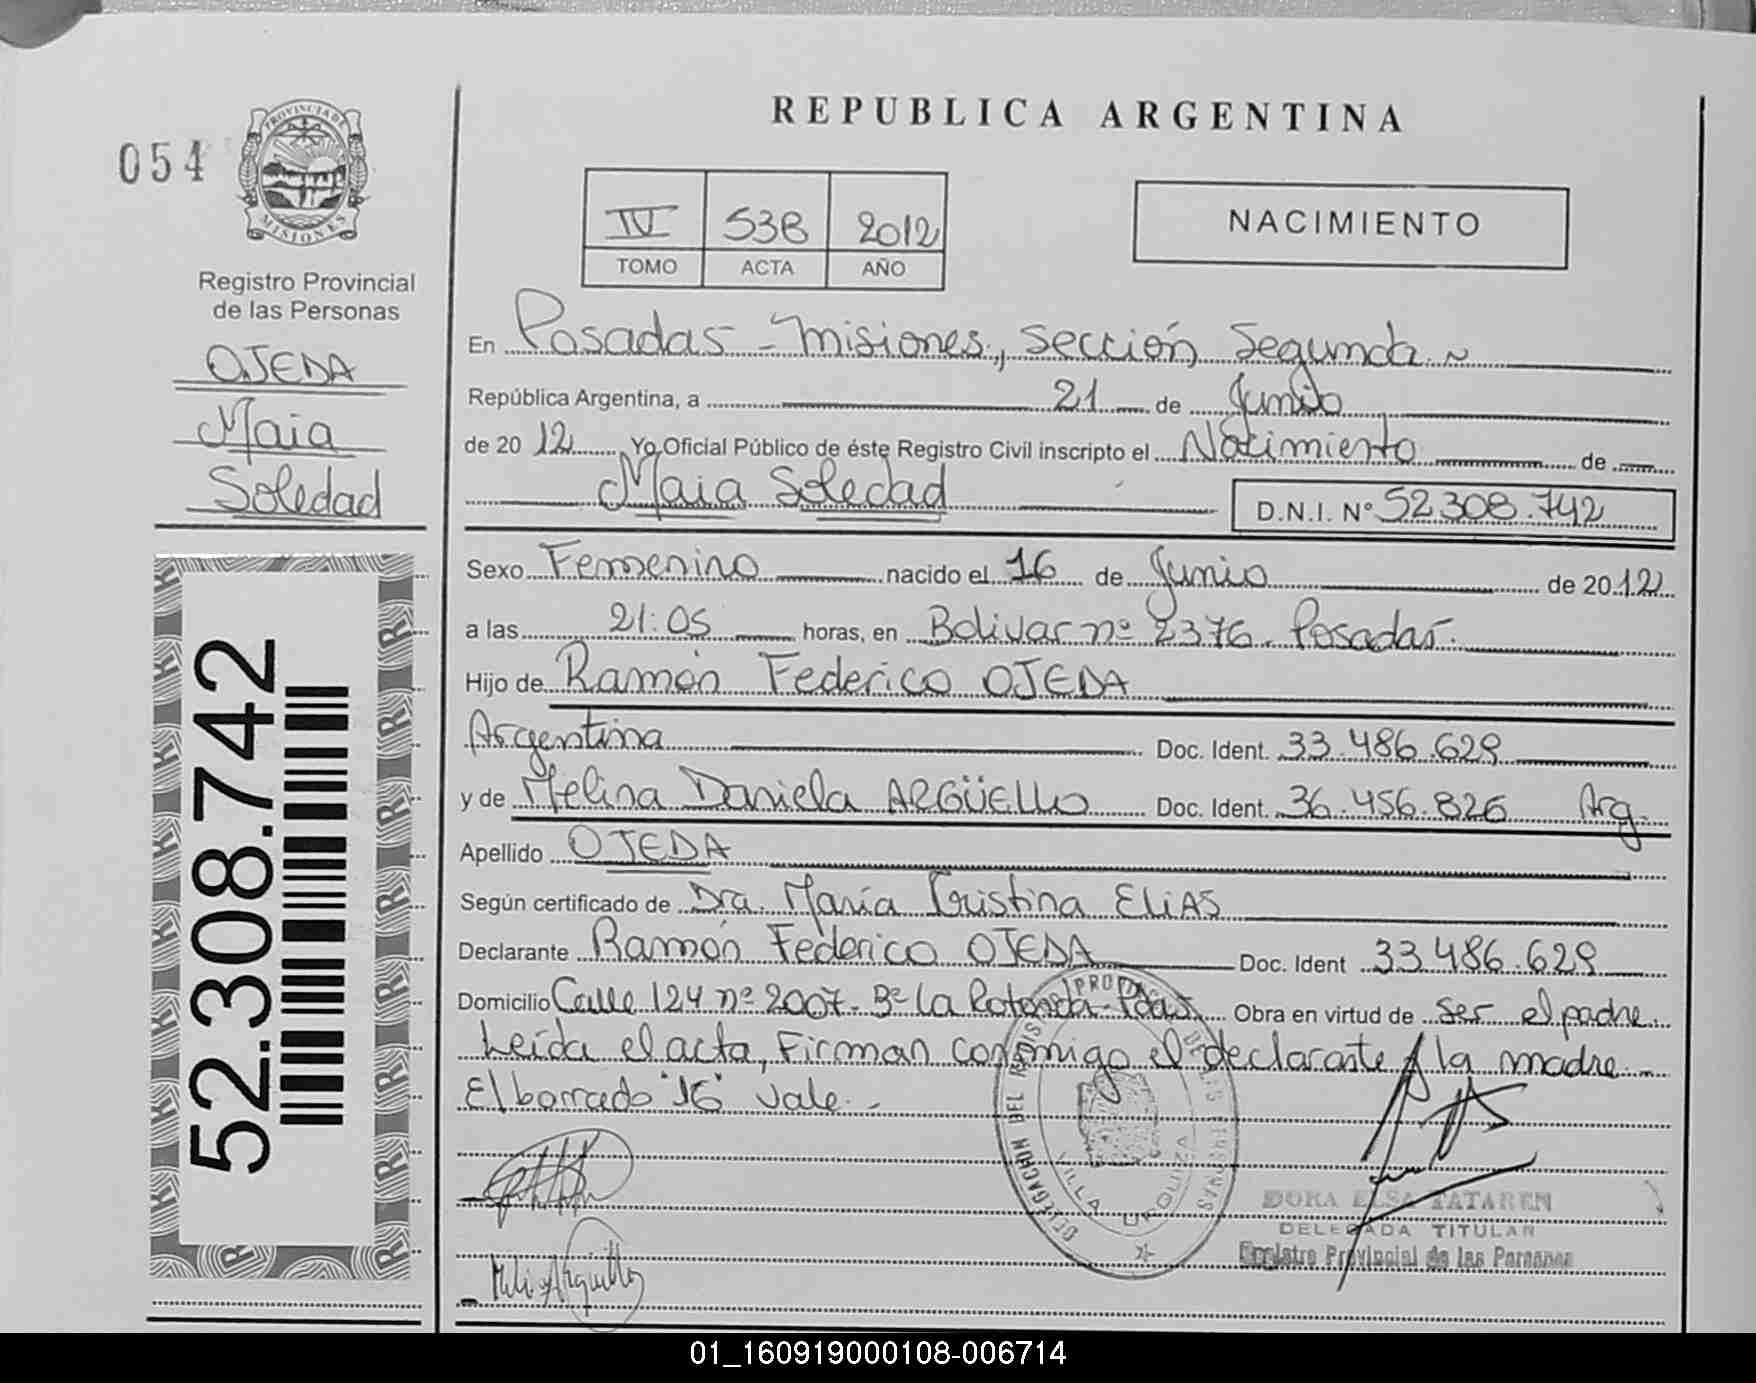 REPUBLICA ARGENTINA
054
PROVINCIA DE
MISIONES
Registro Provincial
de las Personas
OJEDA
Maia
Soledad
52.308.742
IV 538 2012
TOMO ACTA AÑO
NACIMIENTO
En Posadas - Misiones, Sección Segunda ~
República Argentina, a 21 de Junio
de 20 12 Yo Oficial Público de éste Registro Civil inscripto el Nacimiento de
Maia Soledad D.N.I. Nº 52.308.742
Sexo Femenino nacido el 16 de Junio de 2012
a las 21:05 horas, en Bolivar nº 2376. Posadas.
Hijo de Ramón Federico OJEDA
Argentina Doc. Ident. 33.486.629
y de Melina Daniela ARGÜELLO Doc. Ident. 36.456.826 Arg.
Apellido OJEDA
Según certificado de Dra. María Cristina ELIAS
Declarante Ramón Federico OJEDA Doc. Ident 33.486.629
Domicilio Calle 124 nº 2007. Bº La Rotonda - Pdas. Obra en virtud de ser el padre.
Leída el acta, Firman conmigo el declarante y la madre.-
El borrado "16" vale.-
DELEGACION DEL REGISTRO PROV. DE LAS PERSONAS
VILLA URQUIZA
DORA ELSA TATAREN
DELEGADA TITULAR
Registro Provincial de las Personas
01_160919000108-006714